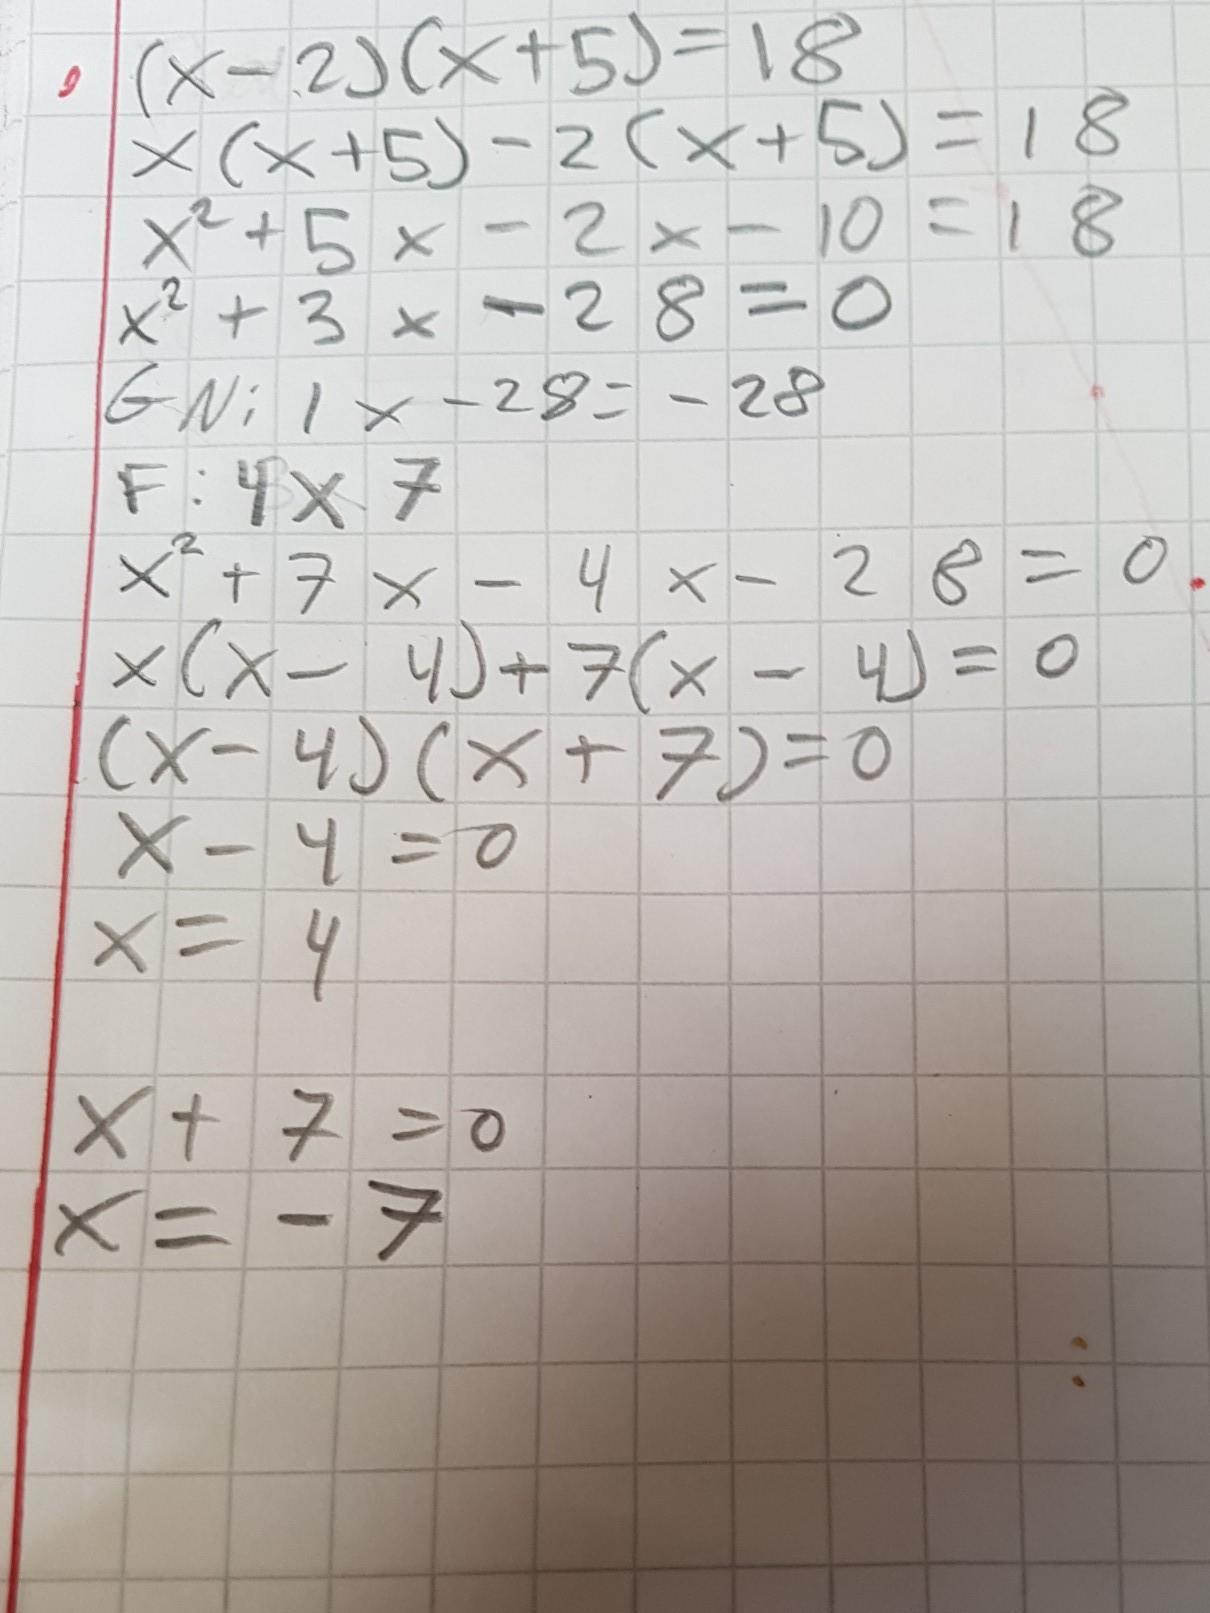 (x-2)(x+5)=18
x(x+5)-2(x+5)=18
x²+5x-2x-10=18
x²+3x-28=0
GN: 1x-28=-28
F: 4x7
x²+7x-4x-28=0
x(x-4)+7(x-4)=0
(x-4)(x+7)=0
x-4=0
x=4
x+7=0
x=-7